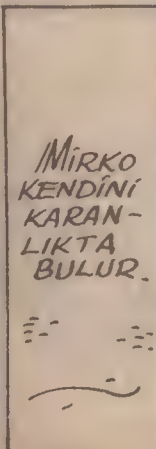 MİRKO
KENDİNİ
KARAN-
LIKTA
BULUR.